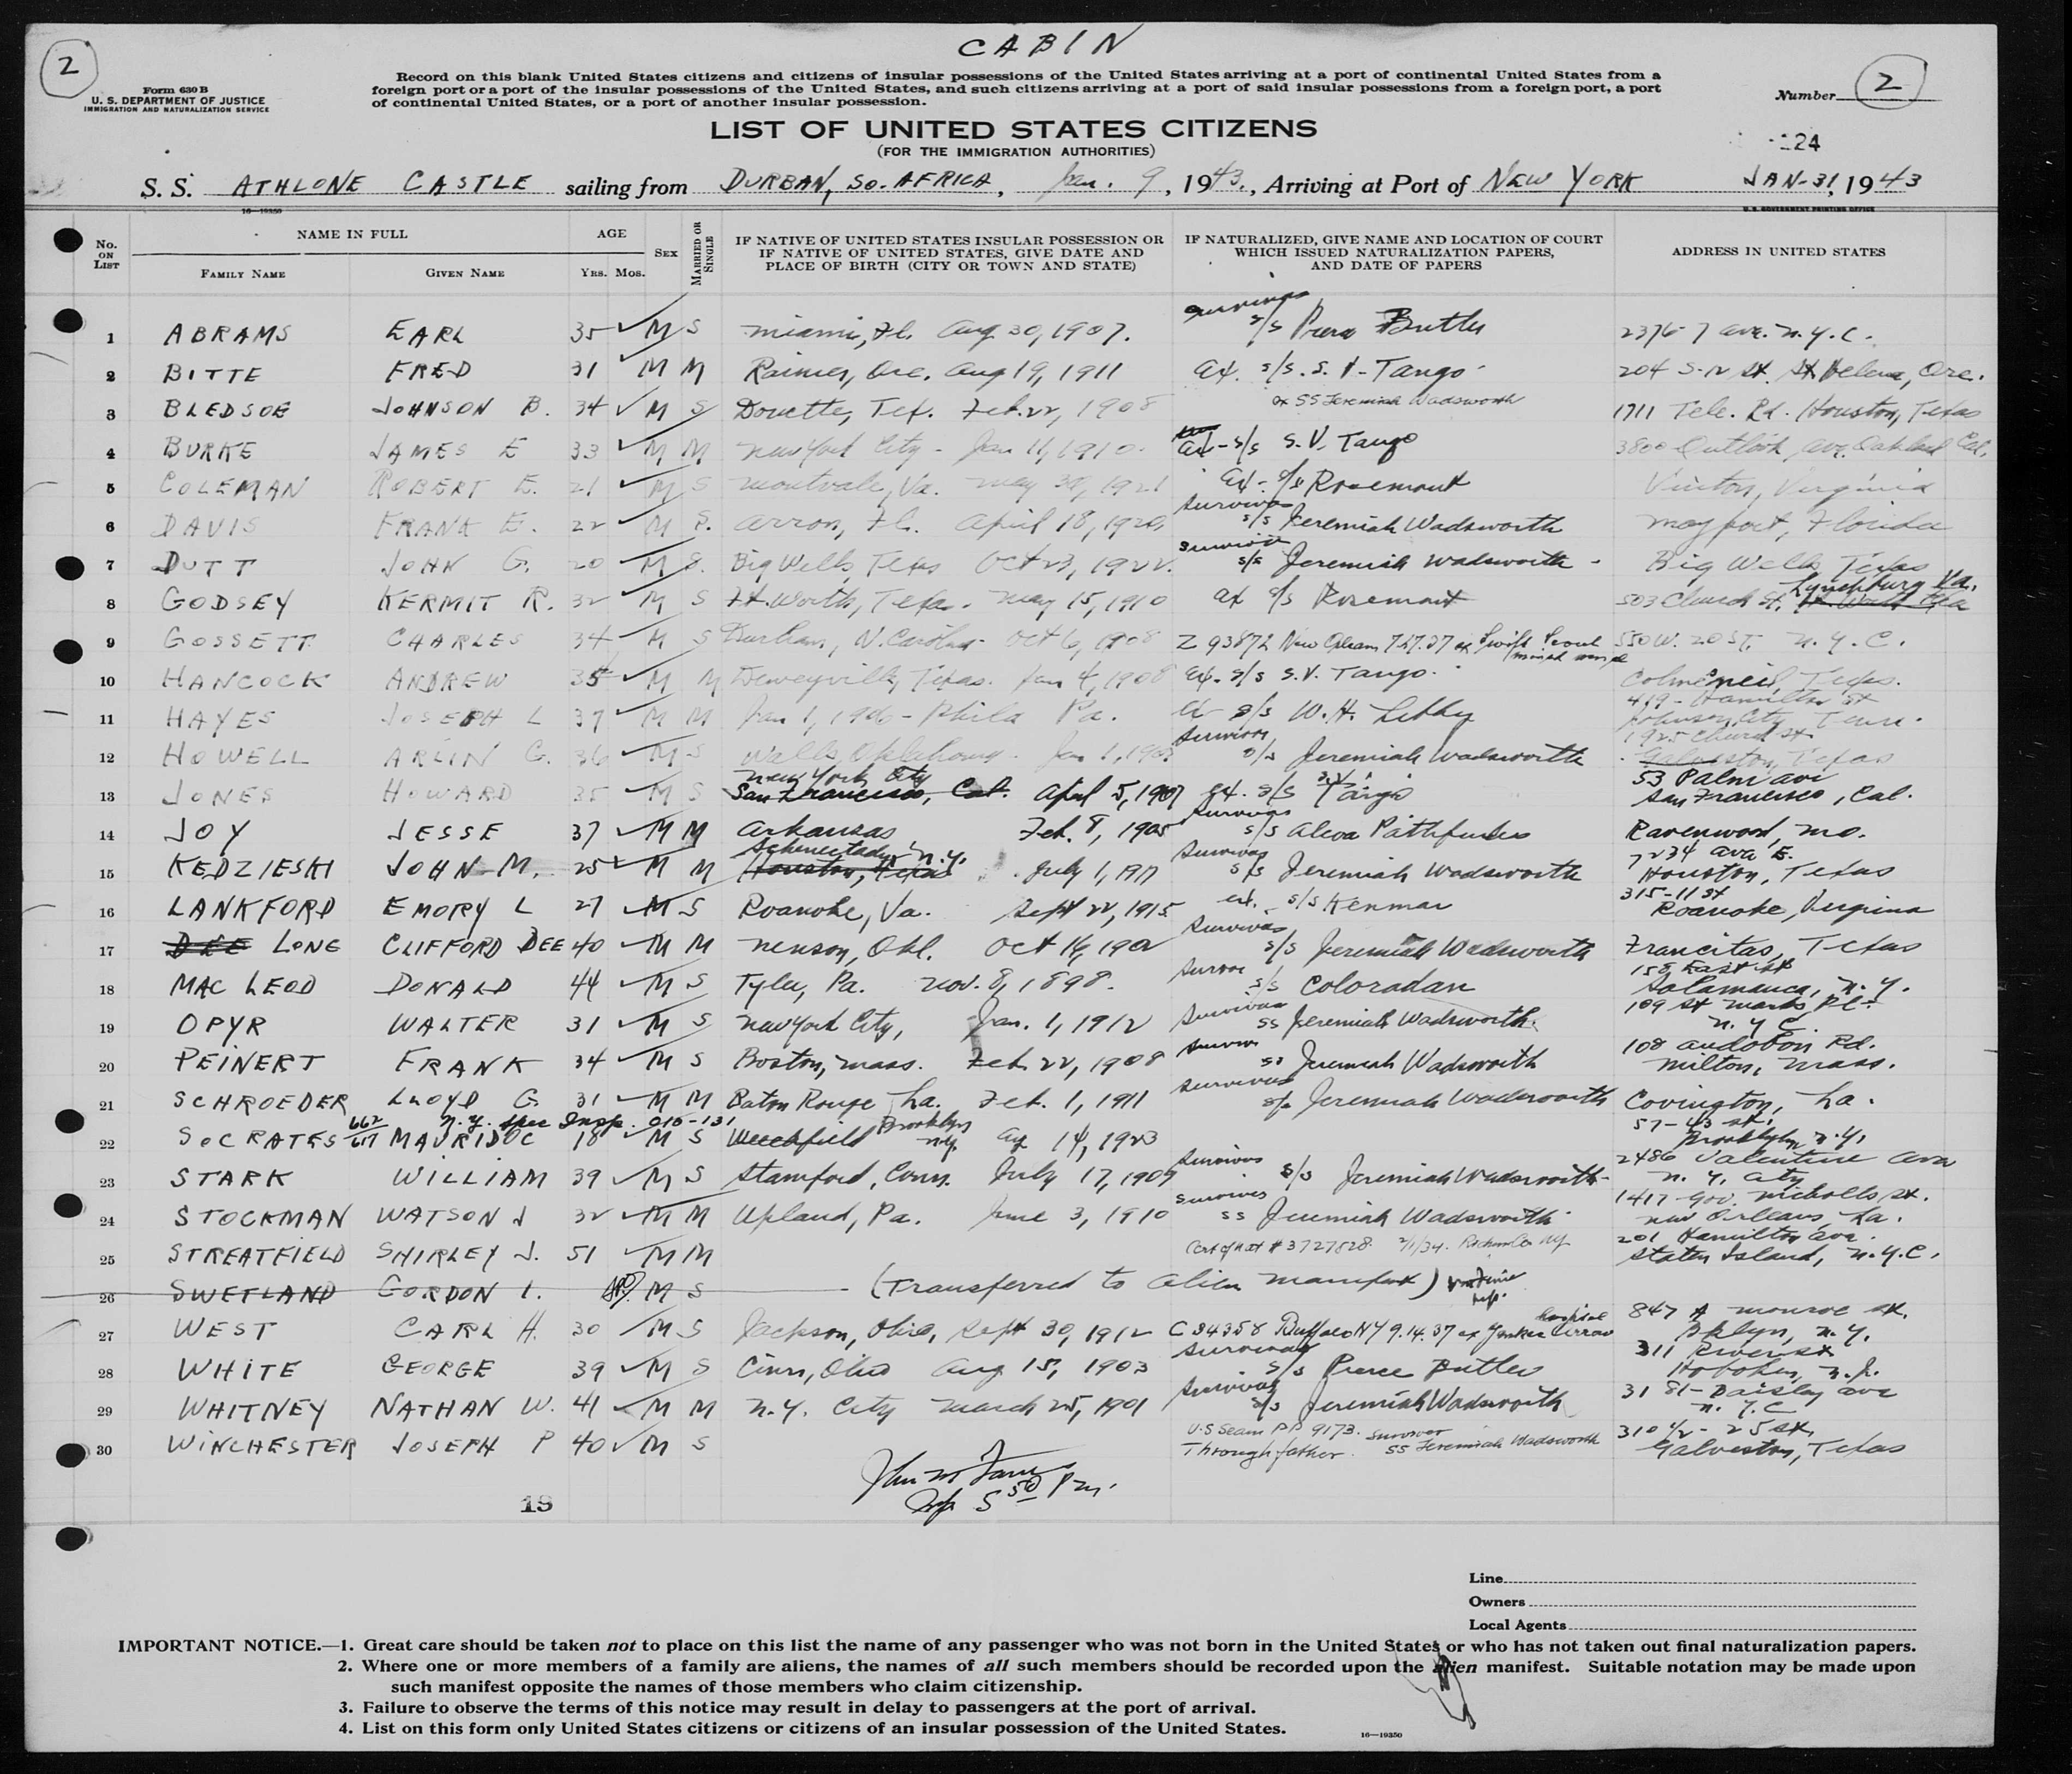 CABIN
2
Form 630 B
U. S. DEPARTMENT OF JUSTICE
IMMIGRATION AND NATURALIZATION SERVICE
Record on this blank United States citizens and citizens of insular possessions of the United States arriving at a port of continental United States from a
foreign port or a port of the insular possessions of the United States, and such citizens arriving at a port of said insular possessions from a foreign port, a port
of continental United States, or a port of another insular possession.
Number 2
LIST OF UNITED STATES CITIZENS
(FOR THE IMMIGRATION AUTHORITIES)
124
S. S. ATHLONE CASTLE sailing from DURBAN, SO. AFRICA, Jan. 9, 1943, Arriving at Port of NEW YORK JAN-31, 1943
16—19350
U. S. GOVERNMENT PRINTING OFFICE
No. ON LIST
NAME IN FULL
FAMILY NAME GIVEN NAME
AGE
YRS. MOS.
SEX
MARRIED OR SINGLE
IF NATIVE OF UNITED STATES INSULAR POSSESSION OR
IF NATIVE OF UNITED STATES, GIVE DATE AND
PLACE OF BIRTH (CITY OR TOWN AND STATE)
IF NATURALIZED, GIVE NAME AND LOCATION OF COURT
WHICH ISSUED NATURALIZATION PAPERS,
AND DATE OF PAPERS
ADDRESS IN UNITED STATES
1 ABRAMS EARL 35 M S Miami, Fl. Aug 30, 1907. s/s Butler 2376 7 ave. N.Y.C.
2 BITTE FRED 31 M M Rainier, Ore. Aug 19, 1911 ex. s/s. S. V. Tango 204 S. 12 St. St Helena, Ore.
3 BLEDSOE JOHNSON B. 34 M S Doucette, Tex. Feb. 22, 1908 ex SS Jeremiah Wadsworth 1711 Tele. Rd. Houston, Texas
4 BURKE JAMES E 33 M M New York City - Jan 11, 1910. ex - s/s S. V. Tango 3800 Outlook ave. Oakland Cal.
5 COLEMAN ROBERT E. 21 M S Montvale, Va. May 1921 ex - s/s Rosemont Vinton, Virginia
6 DAVIS FRANK E. 22 M S. April 18, 1920, Survivor s/s Jeremiah Wadsworth Mayport, Florida
7 DUTT JOHN G. 20 M S. Big Wells, Texas Oct 23, 1922. Survivor s/s Jeremiah Wadsworth - Big Wells, Texas
8 GODSEY KERMIT R. 32 M S Ft. Worth, Texas. May 15, 1910 ex s/s Rosemont 503 Church St, Lynchburg Va.
9 GOSSETT CHARLES 34 M S Durham, N. Carolina Oct 6, 1908 Z 93872 New Orleans 7.27.37 ex Swift Scout 550 W. 20 ST. N.Y.C.
10 HANCOCK ANDREW 35 M M Deweyville, Texas. Jan 4, 1908 ex. s/s S.V. Tango. Colmesneil, Texas.
11 HAYES JOSEPH L 37 M M Jan 1, 1906 - Phila Pa. ex s/s W. H. Libby 419 - Hamilton St Johnson City Tenn.
12 HOWELL ARLIN G. 36 M S Jan 1, Survivor s/s Jeremiah Wadsworth 1925 Church St Galveston, Texas
13 JONES HOWARD 35 M S New York City San Francisco, Cal. April 5, 1907 ex. s/s S.V. Tango 53 Palm ave San Francisco, Cal.
14 JOY JESSE 37 M M Arkansas Feb. 8, 1905 Survivor s/s Alcoa Pathfinder Ravenwood, Mo.
15 KEDZIESKI JOHN M. 25 M M Schenectady N.Y. Houston, Texas July 1, 1917 Survivor s/s Jeremiah Wadsworth 7234 Ave E. Houston, Texas
16 LANKFORD EMORY L 27 M S Roanoke, Va. Sept 22, 1915 ex. s/s Kenmar 315-11 St Roanoke, Virginia
17 DEE LONG CLIFFORD DEE 40 M M Okl. Oct 16, 1902 Survivor s/s Jeremiah Wadsworth Francitas, Texas
18 MAC LEOD DONALD 44 M S Tyler, Pa. Nov. 8, 1898. s/s Coloradan 158 East St Salamanca, N.Y.
19 OPYR WALTER 31 M S New York City, Jan. 1, 1912 Survivor SS Jeremiah Wadsworth. 109 St Marks Pl. N.Y.C.
20 PEINERT FRANK 34 M S Boston, Mass. Feb. 22, 1908 Survivor ss Jeremiah Wadsworth 108 Audobon Rd. Milton, Mass.
21 SCHROEDER LLOYD G. 31 M M Baton Rouge La. Feb. 1, 1911 Survivor s/s Jeremiah Wadsworth Covington, La.
662/617 N.Y. Spec Insp. 010-131
22 SOCRATES MAVRIDOC 18 M S Brooklyn N.Y. 14, 1923 57-43 St. Brooklyn N.Y.
23 STARK WILLIAM 39 M S Stamford, Conn. July 17, 1909 Survivor s/s Jeremiah Wadsworth 2486 Valentine Ave N.Y. City
24 STOCKMAN WATSON J 32 M M Upland, Pa. June 3, 1910 Survivor SS Jeremiah Wadsworth 1417 Gov. Nicholls St. New Orleans, La.
25 STREATFIELD SHIRLEY J. 51 M M Cert of nat # 3727828 2/1/34. N.Y. 201 Hamilton ave. Staten Island, N.Y.C.
26 SWETLAND GORDON I. M S (Transferred to alien manifest)
27 WEST CARL H. 30 M S Jackson, Ohio, Sept 30, 1912 C 34358 Buffalo NY 9.14.37 ex Yankee Arrow hospital 847 A Monroe St. Bklyn, N.Y.
28 WHITE GEORGE 39 M S Cinn, Ohio Aug 15, 1903 Survivor s/s Pierce Butler 311 River St Hoboken, N.J.
29 WHITNEY NATHAN W. 41 M M N.Y. City March 25, 1901 Survivor s/s Jeremiah Wadsworth 31 81 - Paisley ave N.Y.C
30 WINCHESTER JOSEPH P 40 M S U.S Seam PP 9173. Through father. Survivor SS Jeremiah Wadsworth 310 1/2 - 25 St, Galveston, Texas
19
Insp 5 50 Pm.
Line
Owners
Local Agents
IMPORTANT NOTICE.—1. Great care should be taken not to place on this list the name of any passenger who was not born in the United States or who has not taken out final naturalization papers.
2. Where one or more members of a family are aliens, the names of all such members should be recorded upon the alien manifest. Suitable notation may be made upon
such manifest opposite the names of those members who claim citizenship.
3. Failure to observe the terms of this notice may result in delay to passengers at the port of arrival.
4. List on this form only United States citizens or citizens of an insular possession of the United States.
16—19350